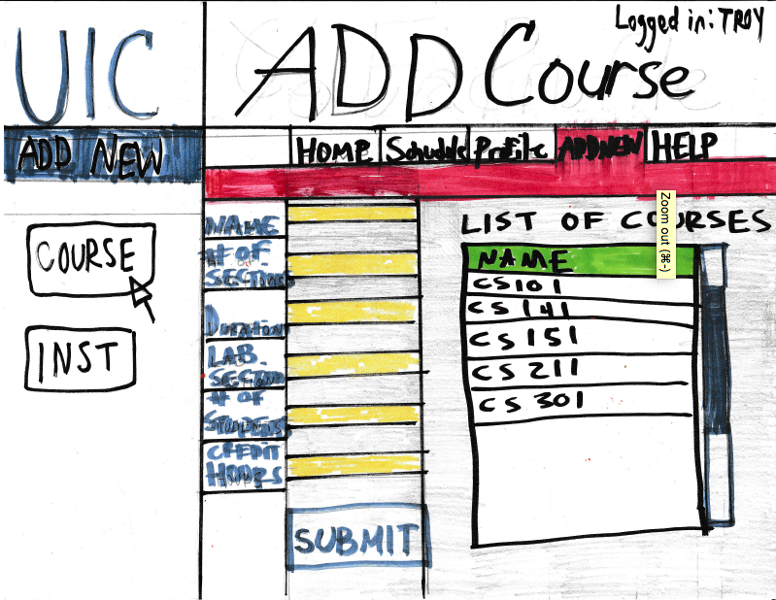 Logged in: TROY
UIC
ADD Course
ADD NEW
HOME
Schedule
Profile
ADD NEW
HELP
COURSE
INST
NAME
# OF
SECTIONS
DURATION
LAB.
SECTION
# OF
STUDENTS
CREDIT
HOURS
SUBMIT
LIST OF COURSES
NAME
CS 101
CS 141
CS 151
CS 211
CS 301
Zoom out (⌘-)